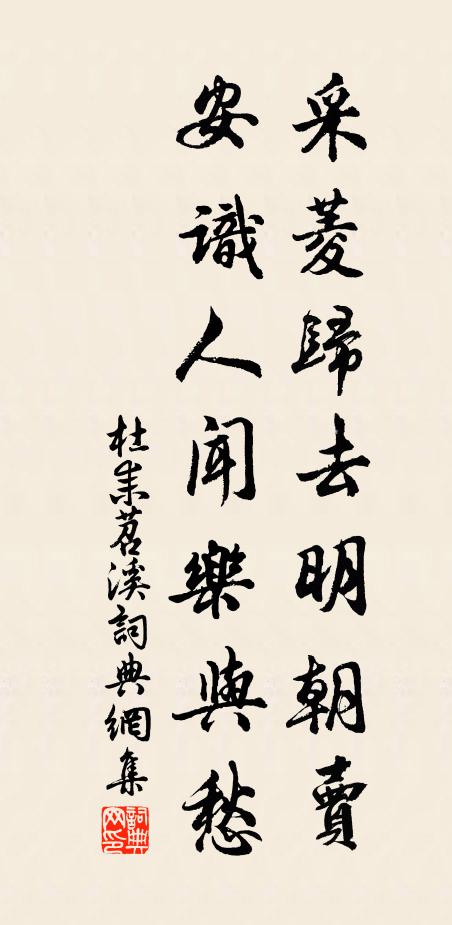 采菱歸去明朝賣
安識人聞樂與愁
杜耒苕溪詞典網集
詞典網印